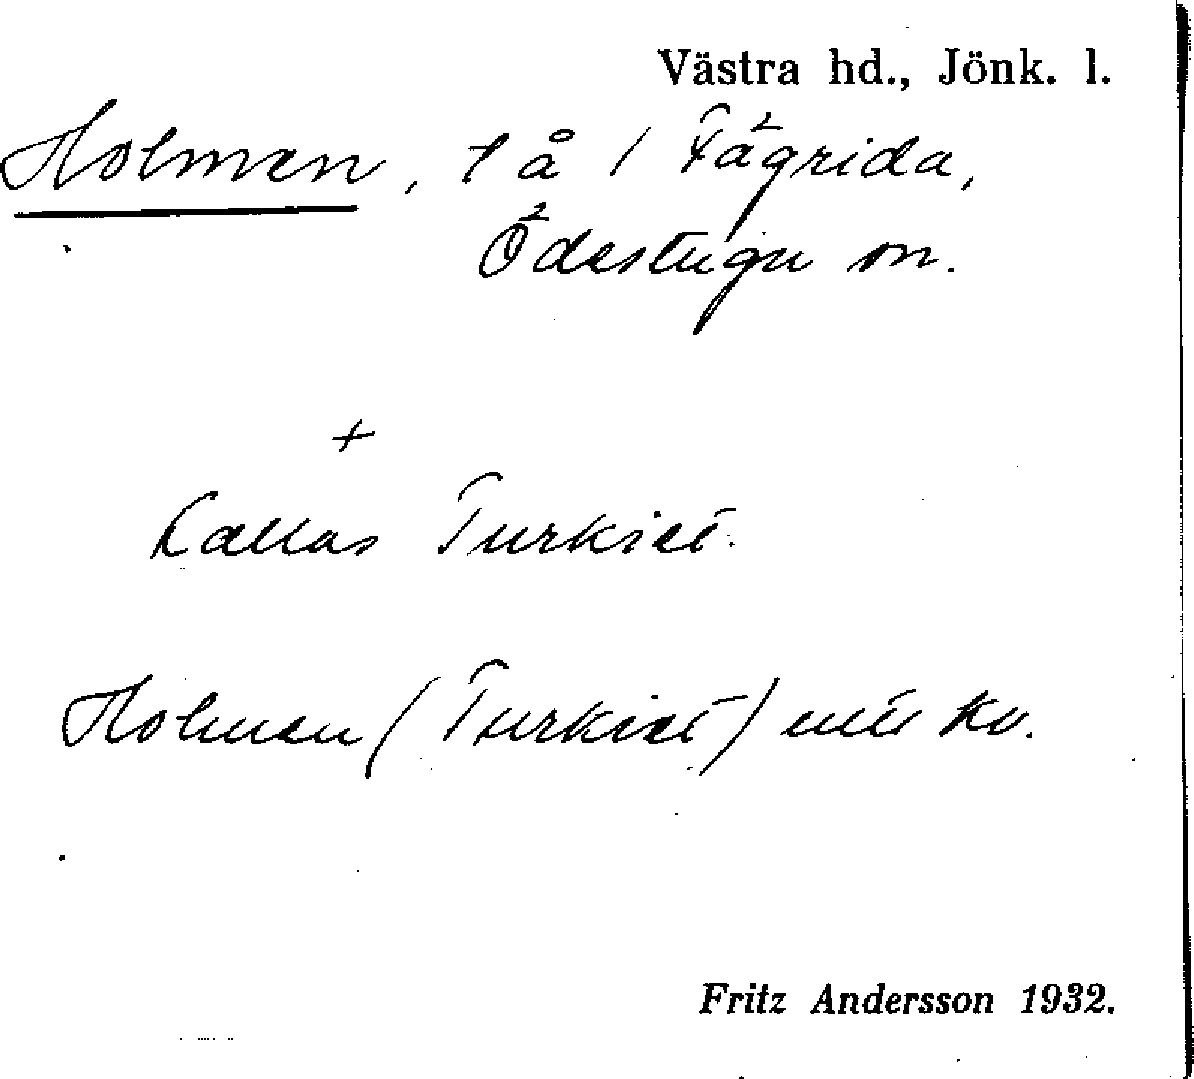 Västra hd., Jönk. l.
Holmen, t å / Fågrida,
Ödestugu sn.
+
Kallas Turkiet.
Holmen (Turkiet) nu kv.
Fritz Andersson 1932.